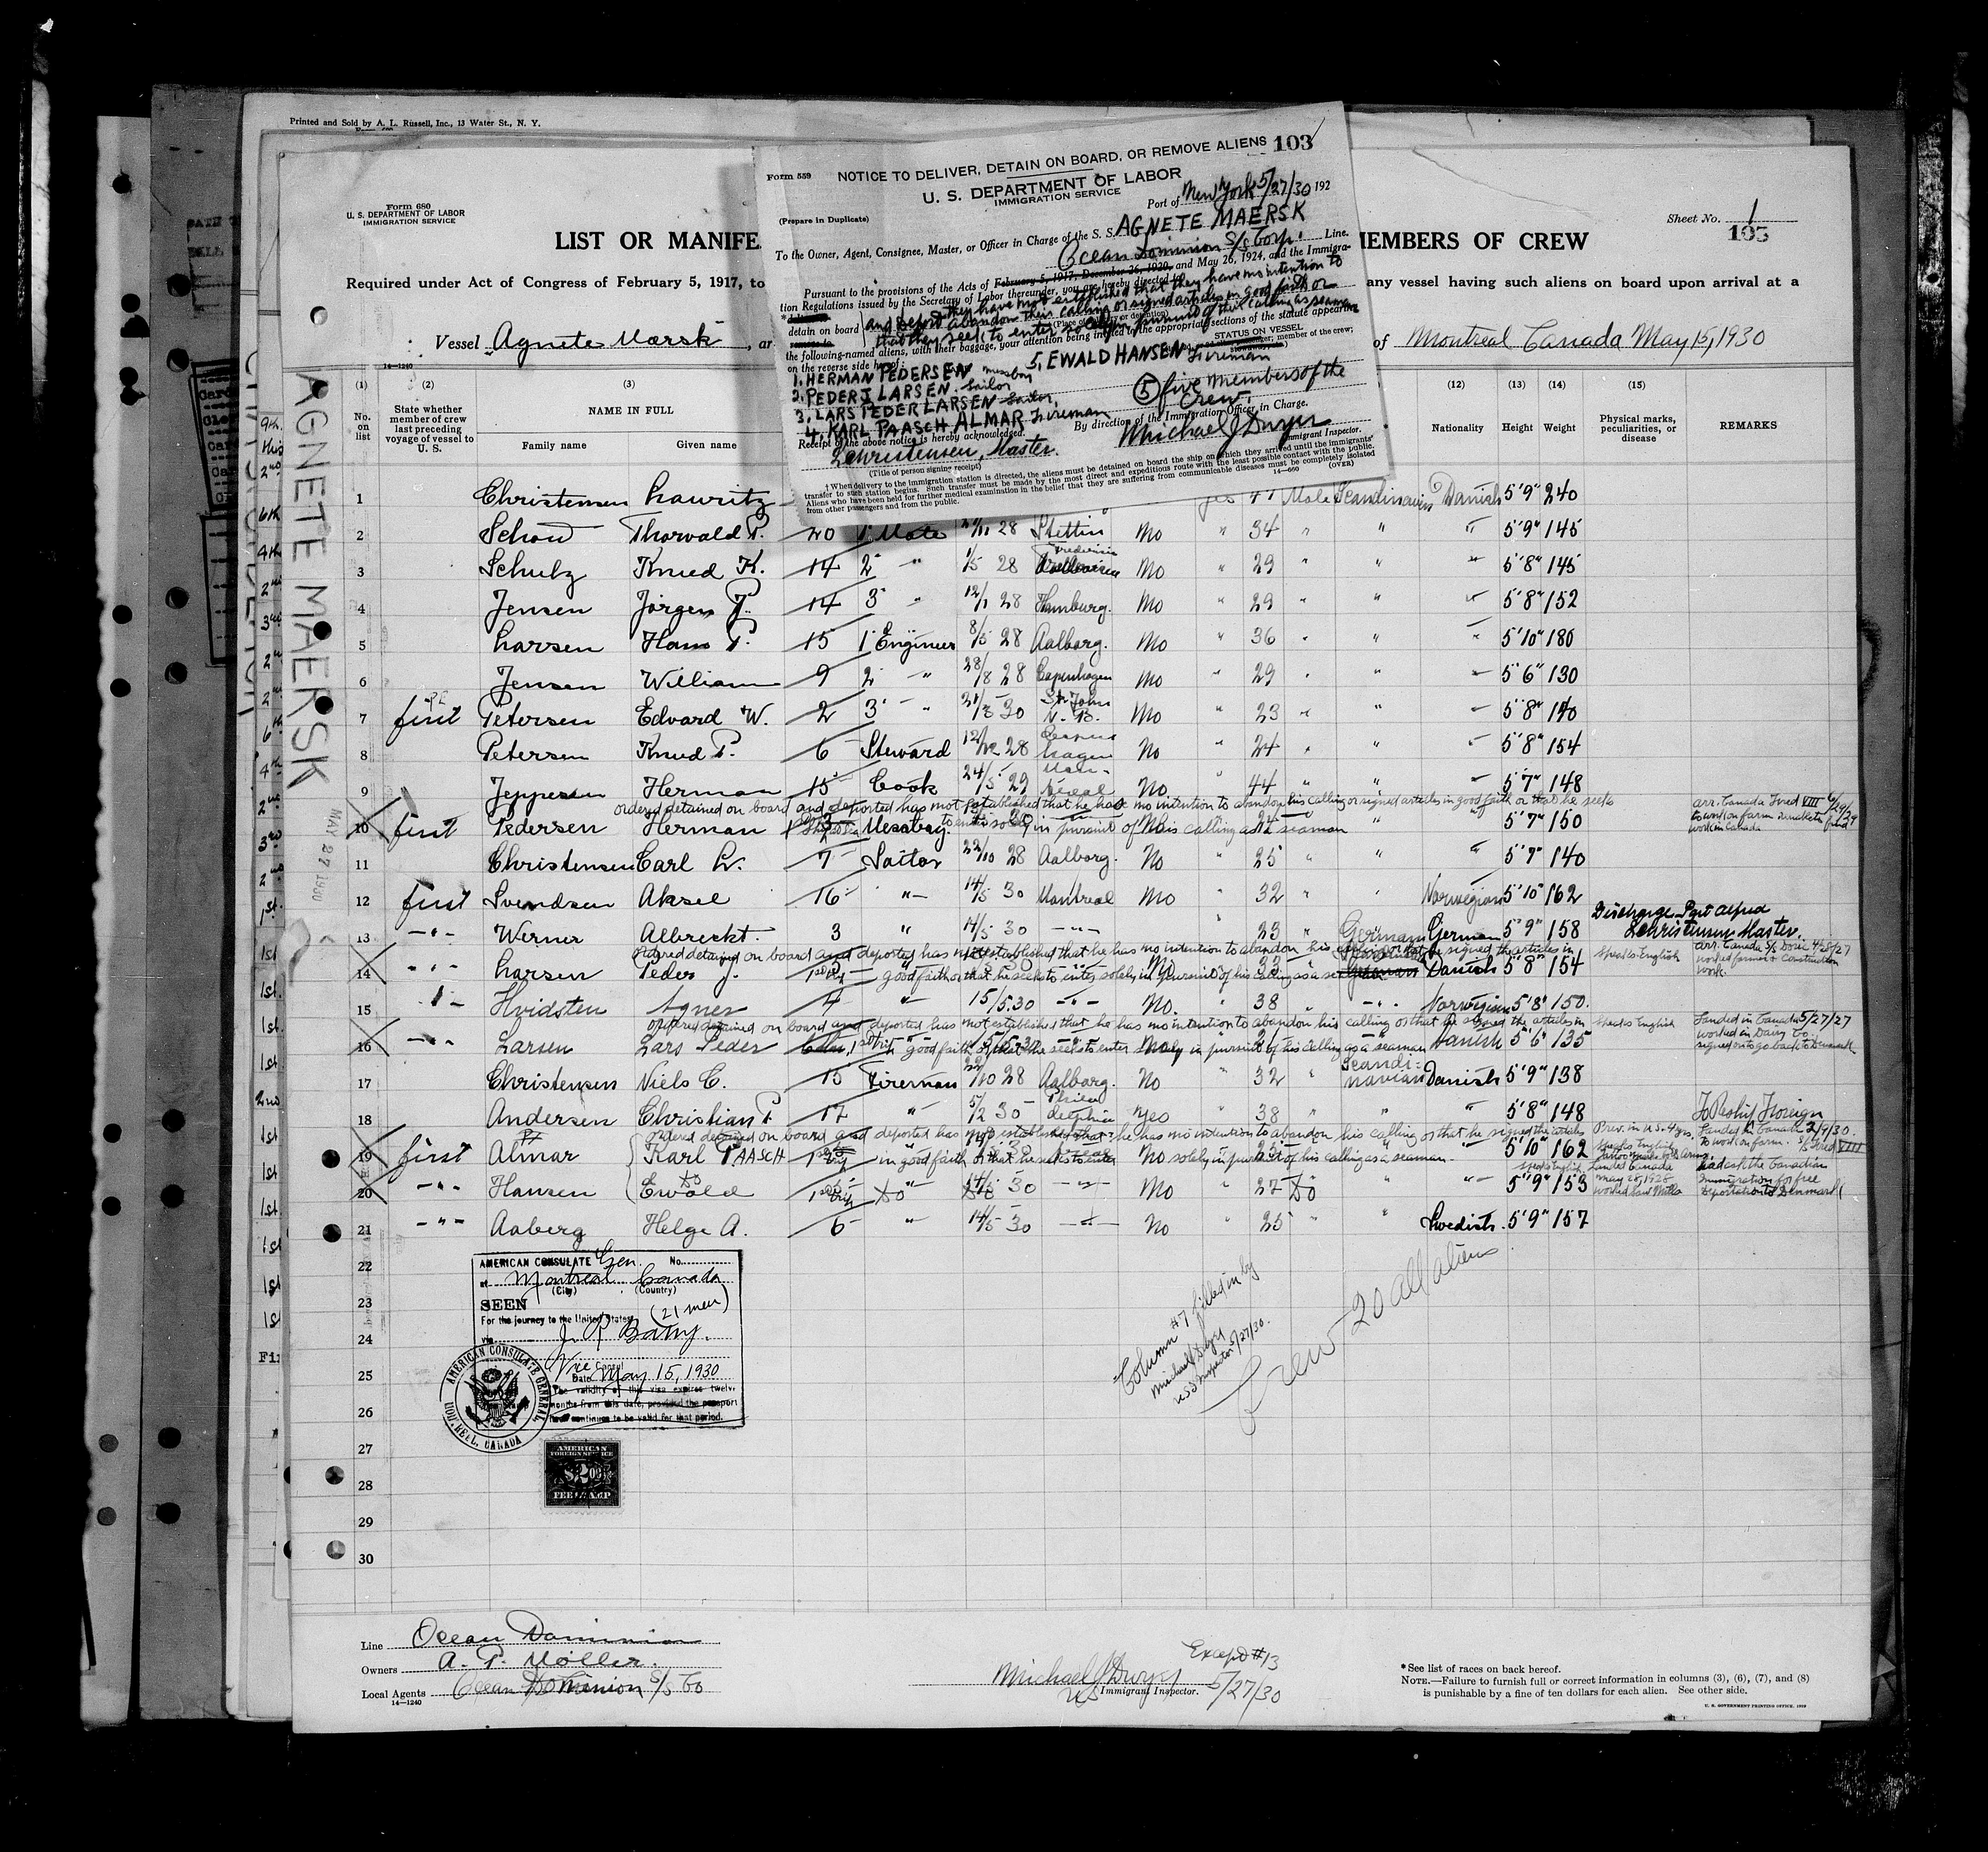 Printed and Sold by A. L. Russell, Inc., 13 Water St., N. Y.
Form 680
U. S. DEPARTMENT OF LABOR
IMMIGRATION SERVICE
Sheet No. 1
103
LIST OR MANIFE
MEMBERS OF CREW
Required under Act of Congress of February 5, 1917, to
any vessel having such aliens on board upon arrival at a
Vessel Agnete Mærsk, ar
of Montreal Canada May 15, 1930
Form 559
NOTICE TO DELIVER, DETAIN ON BOARD, OR REMOVE ALIENS 103
U. S. DEPARTMENT OF LABOR
IMMIGRATION SERVICE
(Prepare in Duplicate)
Port of New York 5/27/30 192
To the Owner, Agent, Consignee, Master, or Officer in Charge of the S. S. AGNETE MAERSK
Ocean Dominion S/S Corp. Line.
Pursuant to the provisions of the Acts of February 5, 1917, December 26, 1920, and May 26, 1924, and the Immigra-
tion Regulations issued by the Secretary of Labor thereunder, you are hereby directed to
detain on board and deport they have not established that they have no intention to
abandon their calling or signed articles in good faith or
that they seek to enter solely in pursuit of their calling as seamen
the following-named aliens, with their baggage, your attention being invited to the appropriate sections of the statute appearing
on the reverse side hereof:
STATUS ON VESSEL
member of the crew;
1. HERMAN PEDERSEN messboy
5. EWALD HANSEN Fireman
2. PEDER J LARSEN. Sailor
3. LARS PEDER LARSEN Sailor,
4. KARL PAASCH ALMAR Fireman
5 five members of the
Crew.
By direction of the Immigration Officer in Charge.
Receipt of the above notice is hereby acknowledged.
LChristensen, Master.
Michael J Dwyer
Immigrant Inspector.
(Title of person signing receipt)
† When delivery to the immigration station is directed, the aliens must be detained on board the ship on which they arrived until the immigrants'
transfer to such station begins. Such transfer must be made by the most direct and expeditious route with the least possible contact with the public.
Aliens who have been held for further medical examination in the belief that they are suffering from communicable diseases must be completely isolated
from other passengers and from the public.
14—600 (OVER)
14—1240
(1) (2) (3) (12) (13) (14) (15)
No. on list
State whether member of crew last preceding voyage of vessel to U. S.
NAME IN FULL
Family name Given name
Nationality Height Weight
Physical marks, peculiarities, or disease
REMARKS
AGNETE MAERSK
MAY 27 1930
1 Christensen Lauritz yes 47 Male Scandinavian Danish 5'9" 240
2 Schou Thorvald P. 20 1' Mate 28 Stettin No " 34 " " " 5'9" 145
3 Schulz Knud K. 14 2' " 1/5 28 Fredericia No " 29 " " " 5'8" 145
4 Jensen Jörgen J. 14 3' " 12/1 28 Hamburg. No " 29 " " " 5'8" 152
5 Larsen Hans P. 15 1' Engineer 8/5 28 Aalborg. No " 36 " " " 5'10" 180
6 Jensen William 9 2' " 28/8 28 Copenhagen No " 29 " " " 5'6" 130
7 first Petersen Edvard W. 2 3' " 21/3 30 St. John N. B. No " 23 " " " 5'8" 140
8 Petersen Knud P. 6 Steward 12/12 28 Copenhagen No " 24 " " " 5'8" 154
9 Jeppesen Herman 15 Cook 24/5 29 Montreal No. " 44 " " " 5'7" 148
ordered detained on board and deported has not established that he has no intention to abandon his calling or signed articles in good faith or that he seeks
to enter solely in pursuit of his calling as a seaman
10 first Pedersen Herman Messboy. 5'7" 150
11 Christensen Carl L. 7 Sailor 22/10 28 Aalborg. No " 25 " " " 5'7" 140
12 first Svendsen Aksel 16 " 14/5 30 Montreal No " 32 " " Norwegian 5'10" 162
Discharge Port Alfred
LChristensen Master.
13 " Werner Albrecht. 3 " 14/5 30 " " 23 " German German 5'9" 158
ordered detained on board and deported has not established that he has no intention to abandon his calling or that he signed the articles in
good faith or that he seeks to enter solely in pursuit of his calling as a seaman
14 " Larsen Peder J. Danish 5'8" 154 Speaks English
15 " Hvidsten Agner 4 " 15/5.30 " No. " 38 " " Norwegian 5'8" 150.
ordered detained on board and deported has not established that he has no intention to abandon his calling or that he signed the articles in
good faith or that he seeks to enter solely in pursuit of his calling as a seaman
16 " Larsen Lars Peder Danish 5'6" 135 Speaks English
Landed in Canada 5/27/27
worked in Dairy Co.
signed on to go back to Denmark
17 Christensen Niels C. 15 Fireman 22/10 28 Aalborg. No " 32 " Scandinavian Danish 5'9" 138
18 Andersen Christian P. 17 " 5/2 30 Philadelphia Yes " 38 " " " 5'8" 148 To Reship Foreign
ordered detained on board and deported has not established that he has no intention to abandon his calling or that he signed the articles
in good faith or that he seeks to enter solely in pursuit of his calling as a seaman.
19 first Almar Karl PAASCH No 5'10" 162
Prev. in U.S. 4 yrs. Landed in Canada 2/9/30.
Speaks English To work on farm.
20 " Hansen Ewald Do 14/5 30 " No " 27 Do " 5'9" 153
Speaks English Landed Canada
May 28, 1928
had ask the Canadian
Immigration for free
Deportation to Denmark
21 " Aaberg Helge A. 6 " 14/5 30 " No " 25 " " Swedish. 5'9" 157
22
23
24
25
26
27
28
29
30
AMERICAN CONSULATE Gen. No.
at Montreal Canada
(City) (Country)
SEEN (21 men)
For the journey to the United States
via
J. R. Barry.
Vice Consul
Date May 15, 1930
The validity of this visa expires twelve
months from this date, provided the passport
continues to be valid for that period.
AMERICAN CONSULATE GENERAL
MONTREAL, CANADA
AMERICAN
FOREIGN SERVICE
$2.00
FEE STAMP
Column #7 filled in by
Michael J Dwyer
US Inspector 5/27/30.
Crew 20 all aliens
Line Ocean Dominion
Owners A. P. Möller.
Local Agents Ocean Dominion S/S Co
14—1240
Except #13
Michael J Dwyer
US Immigrant Inspector. 5/27/30
* See list of races on back hereof.
NOTE.—Failure to furnish full or correct information in columns (3), (6), (7), and (8)
is punishable by a fine of ten dollars for each alien. See other side.
U. S. GOVERNMENT PRINTING OFFICE